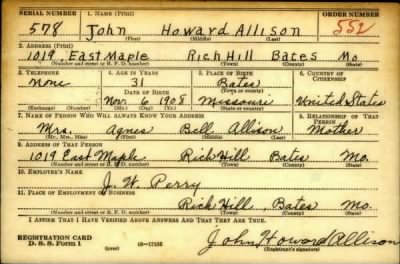 SERIAL NUMBER 1. NAME (Print) ORDER NUMBER
578 John Howard Allison 552
(First) (Middle) (Last)
2. ADDRESS (Print)
1019 East Maple Rich Hill Bates Mo
(Number and street or R. F. D. number) (Town) (County) (State)
3. TELEPHONE 4. AGE IN YEARS 5. PLACE OF BIRTH 6. COUNTRY OF CITIZENSHIP
None 31 Bates
DATE OF BIRTH (Town or county)
Nov. 6 1908 Missouri United States
(Exchange) (Number) (Mo.) (Day) (Yr.) (State or country)
7. NAME OF PERSON WHO WILL ALWAYS KNOW YOUR ADDRESS 8. RELATIONSHIP OF THAT PERSON
Mrs. Agnes Bell Allison Mother
(Mr., Mrs., Miss) (First) (Middle) (Last)
9. ADDRESS OF THAT PERSON
1019 East Maple Rich Hill Bates Mo.
(Number and street or R. F. D. number) (Town) (County) (State)
10. EMPLOYER'S NAME
J. W. Perry
11. PLACE OF EMPLOYMENT OR BUSINESS
Rich Hill, Bates Mo.
(Number and street or R. F. D. number) (Town) (County) (State)
I AFFIRM THAT I HAVE VERIFIED ABOVE ANSWERS AND THAT THEY ARE TRUE.
REGISTRATION CARD
D. S. S. Form 1 16-17105 John Howard Allison
(Registrant's signature)